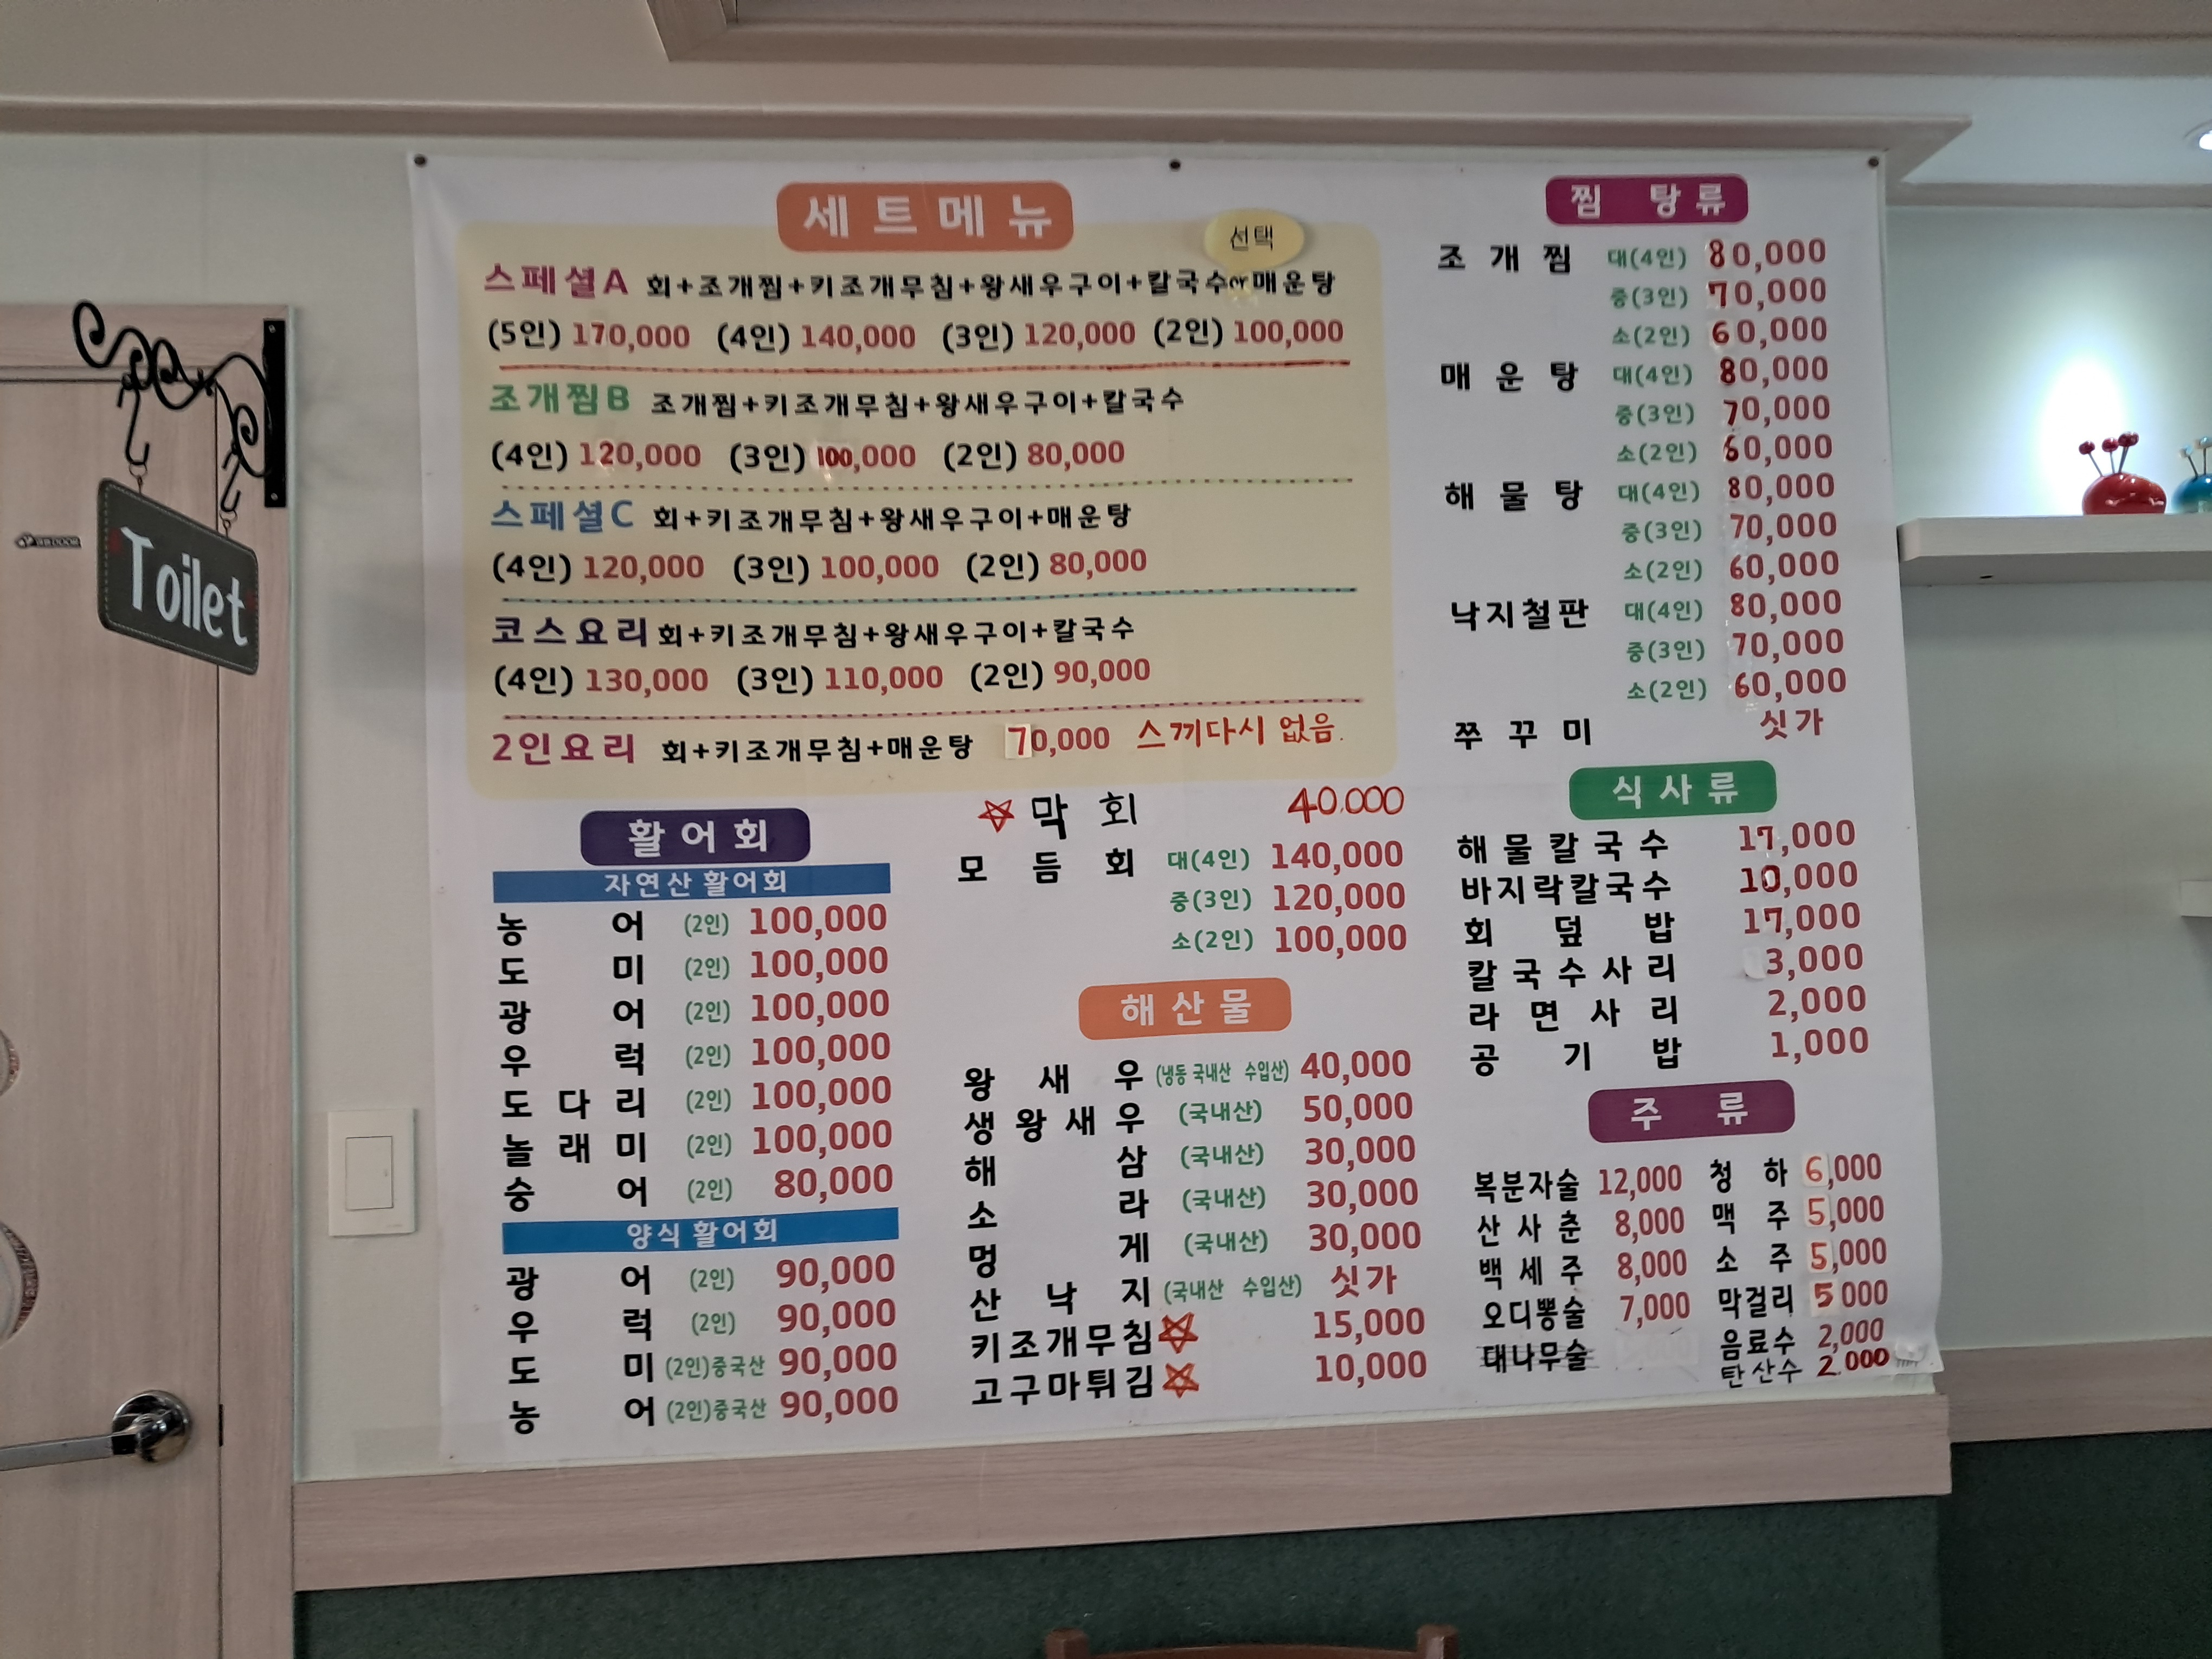 Toilet
세트메뉴
선택
스페셜A 회+조개찜+키조개무침+왕새우구이+칼국수or매운탕
(5인) 170,000 (4인) 140,000 (3인) 120,000 (2인) 100,000
조개찜B 조개찜+키조개무침+왕새우구이+칼국수
(4인) 120,000 (3인) 100,000 (2인) 80,000
스페셜C 회+키조개무침+왕새우구이+매운탕
(4인) 120,000 (3인) 100,000 (2인) 80,000
코스요리 회+키조개무침+왕새우구이+칼국수
(4인) 130,000 (3인) 110,000 (2인) 90,000
2인요리 회+키조개무침+매운탕 70,000 스끼다시 없음.
활어회
자연산 활어회
농어 (2인) 100,000
도미 (2인) 100,000
광어 (2인) 100,000
우럭 (2인) 100,000
도다리 (2인) 100,000
놀래미 (2인) 100,000
숭어 (2인) 80,000
양식 활어회
광어 (2인) 90,000
우럭 (2인) 90,000
도미 (2인)중국산 90,000
농어 (2인)중국산 90,000
☆막회 40.000
모듬회 대(4인) 140,000
중(3인) 120,000
소(2인) 100,000
해산물
왕새우 (냉동 국내산 수입산) 40,000
생왕새우 (국내산) 50,000
해삼 (국내산) 30,000
소라 (국내산) 30,000
멍게 (국내산) 30,000
산낙지 (국내산 수입산) 싯가
키조개무침☆ 15,000
고구마튀김☆ 10,000
찜 탕류
조개찜 대(4인) 80,000
중(3인) 70,000
소(2인) 60,000
매운탕 대(4인) 80,000
중(3인) 70,000
소(2인) 60,000
해물탕 대(4인) 80,000
중(3인) 70,000
소(2인) 60,000
낙지철판 대(4인) 80,000
중(3인) 70,000
소(2인) 60,000
쭈꾸미 싯가
식사류
해물칼국수 17,000
바지락칼국수 10,000
회덮밥 17,000
칼국수사리 3,000
라면사리 2,000
공기밥 1,000
주류
복분자술 12,000 청하 6,000
산사춘 8,000 맥주 5,000
백세주 8,000 소주 5,000
오디뽕술 7,000 막걸리 5000
대나무술 음료수 2,000
탄산수 2.000